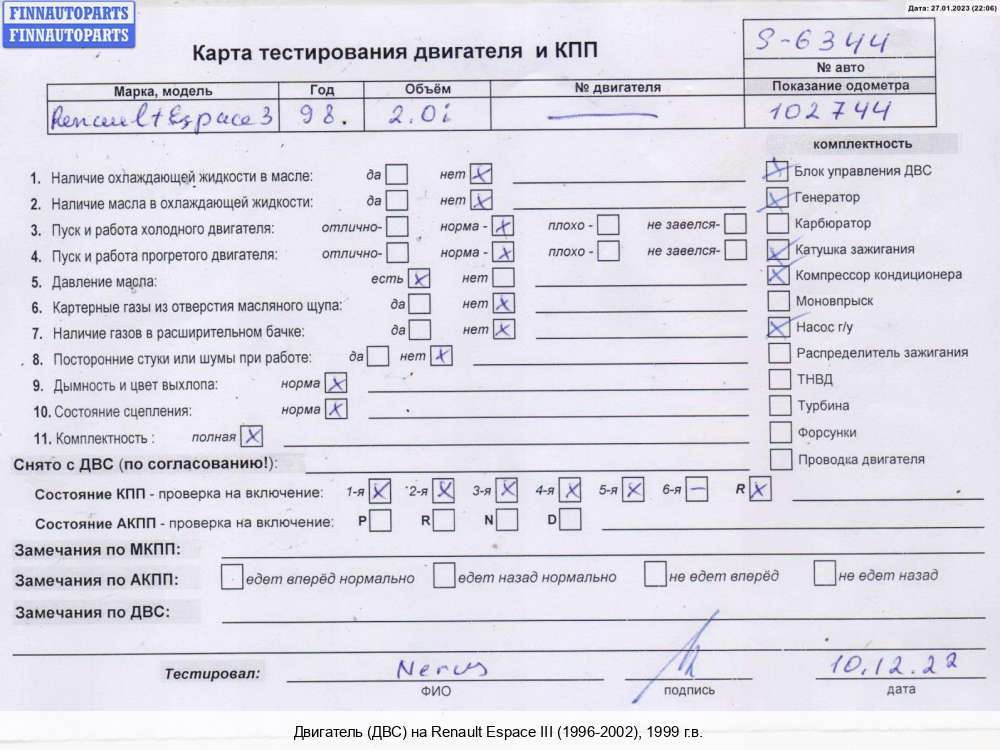 FINNAUTOPARTS
FINNAUTOPARTS
Дата: 27.01.2023 (22:06)
Карта тестирования двигателя и КПП
S-6344
№ авто
Марка, модель Год Объём № двигателя Показание одометра
Renault Espace 3 98. 2.0i — 102744
комплектность
1. Наличие охлаждающей жидкости в масле: да нет
Блок управления ДВС
2. Наличие масла в охлаждающей жидкости: да нет
Генератор
3. Пуск и работа холодного двигателя: отлично- норма - плохо - не завелся-
Карбюратор
4. Пуск и работа прогретого двигателя: отлично- норма - плохо - не завелся-
Катушка зажигания
5. Давление масла: есть нет
Компрессор кондиционера
6. Картерные газы из отверстия масляного щупа: да нет
Моновпрыск
7. Наличие газов в расширительном бачке: да нет
Насос г/у
8. Посторонние стуки или шумы при работе: да нет
Распределитель зажигания
9. Дымность и цвет выхлопа: норма
ТНВД
10. Состояние сцепления: норма
Турбина
11. Комплектность : полная
Форсунки
Снято с ДВС (по согласованию!):
Проводка двигателя
Состояние КПП - проверка на включение: 1-я 2-я 3-я 4-я 5-я 6-я R
Состояние АКПП - проверка на включение: P R N D
Замечания по МКПП:
Замечания по АКПП: едет вперёд нормально едет назад нормально не едет вперёд не едет назад
Замечания по ДВС:
Тестировал: 10.12.22
ФИО подпись дата
Двигатель (ДВС) на Renault Espace III (1996-2002), 1999 г.в.